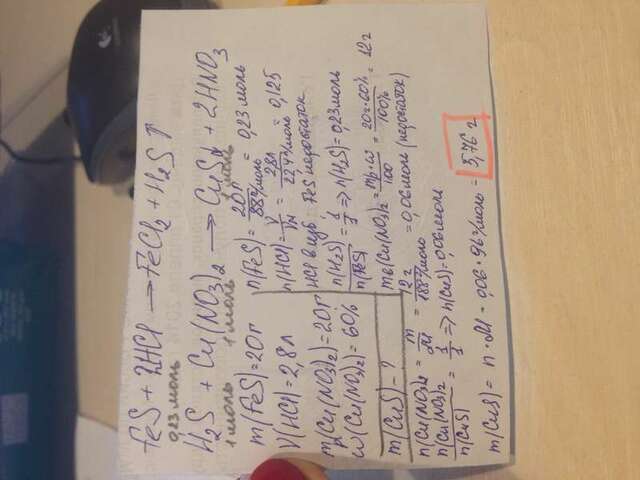 FeS + 2HCl → FeCl2 + H2S↑
0,23 моль
H2S + Cu(NO3)2 → CuS↓ + 2HNO3
1 моль 1 моль 1 моль
m(FeS) = 20 г
V(HCl) = 2,8 л
mр(Cu(NO3)2) = 20 г
ω(Cu(NO3)2) = 60%
m(CuS) - ?
n(FeS) = 20 г / 88 г/моль = 0,23 моль
n(HCl) = V / Vm = 2,8 л / 22,4 л/моль = 0,125
HCl в изб FeS недостаток
n(H2S) / n(FeS) = 1/1 => n(H2S) = 0,23 моль
mв(Cu(NO3)2) = mр·ω / 100 = 20 г·60% / 100% = 12 г
n(Cu(NO3)2) = m / M = 12 г / 188 г/моль = 0,06 моль (недостаток)
n(Cu(NO3)2) / n(CuS) = 1/1 => n(CuS) = 0,06 моль
m(CuS) = n·M = 0,06·96 г/моль = 5,76 г